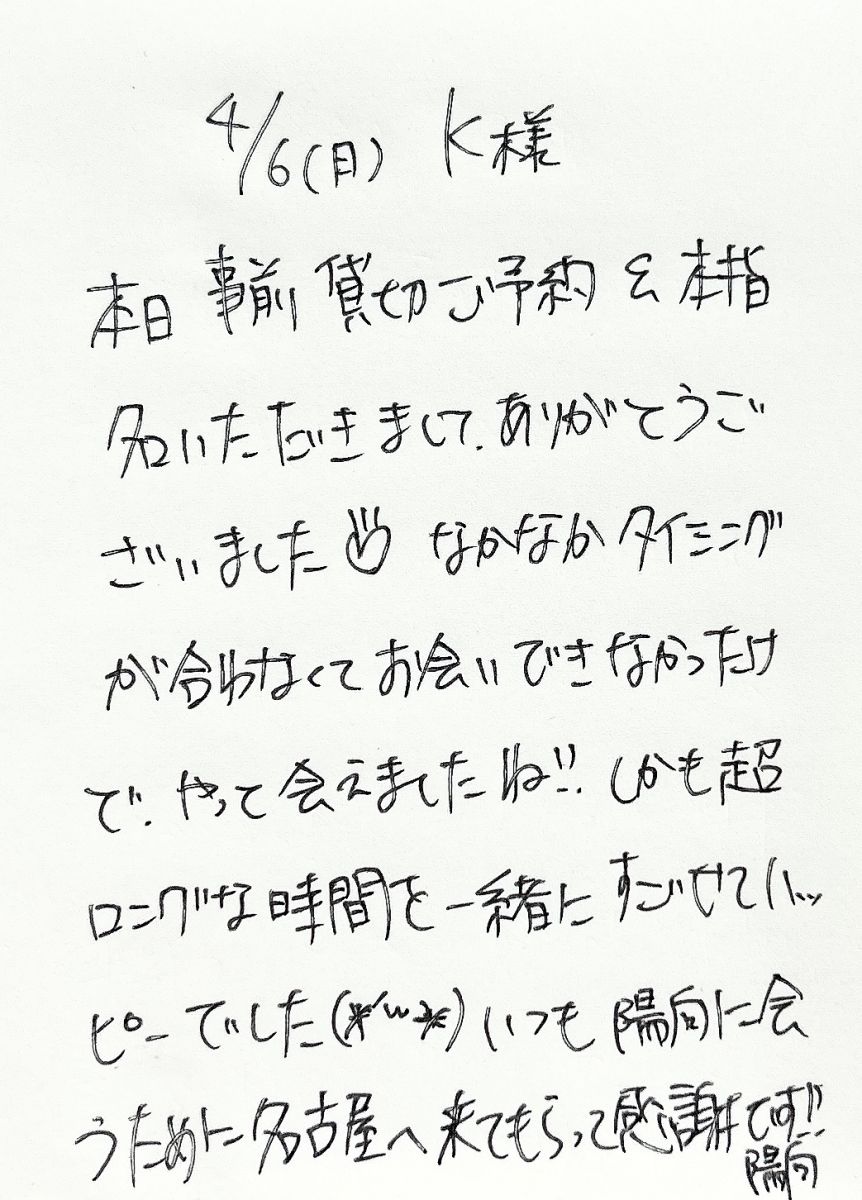 4/6(日) K様
本日 事前 貸切ご予約 & 本指
名いただきまして、ありがとうご
ざいました なかなか タイミング
が合わなくて お会い できなかったけ
で、やって 会えましたね!! しかも 超
ロングな 時間を 一緒に すごせて ハッ
ピーでした(*´ω`*) いつも 陽向に会
うために 名古屋へ 来てもらって 感謝です!!
陽向